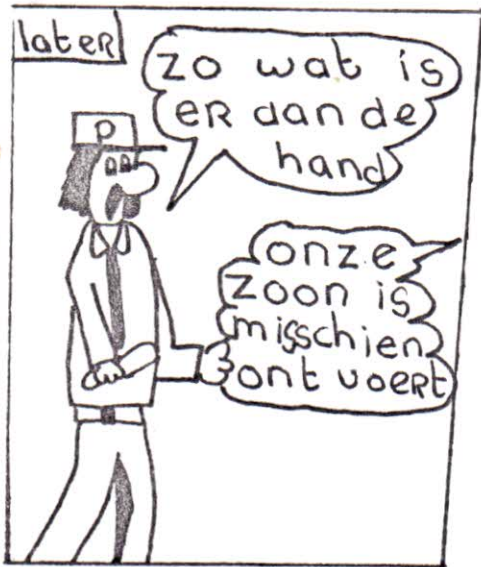 later
zo wat is
er aan de
hand
P
onze
zoon is
misschien
ont voert